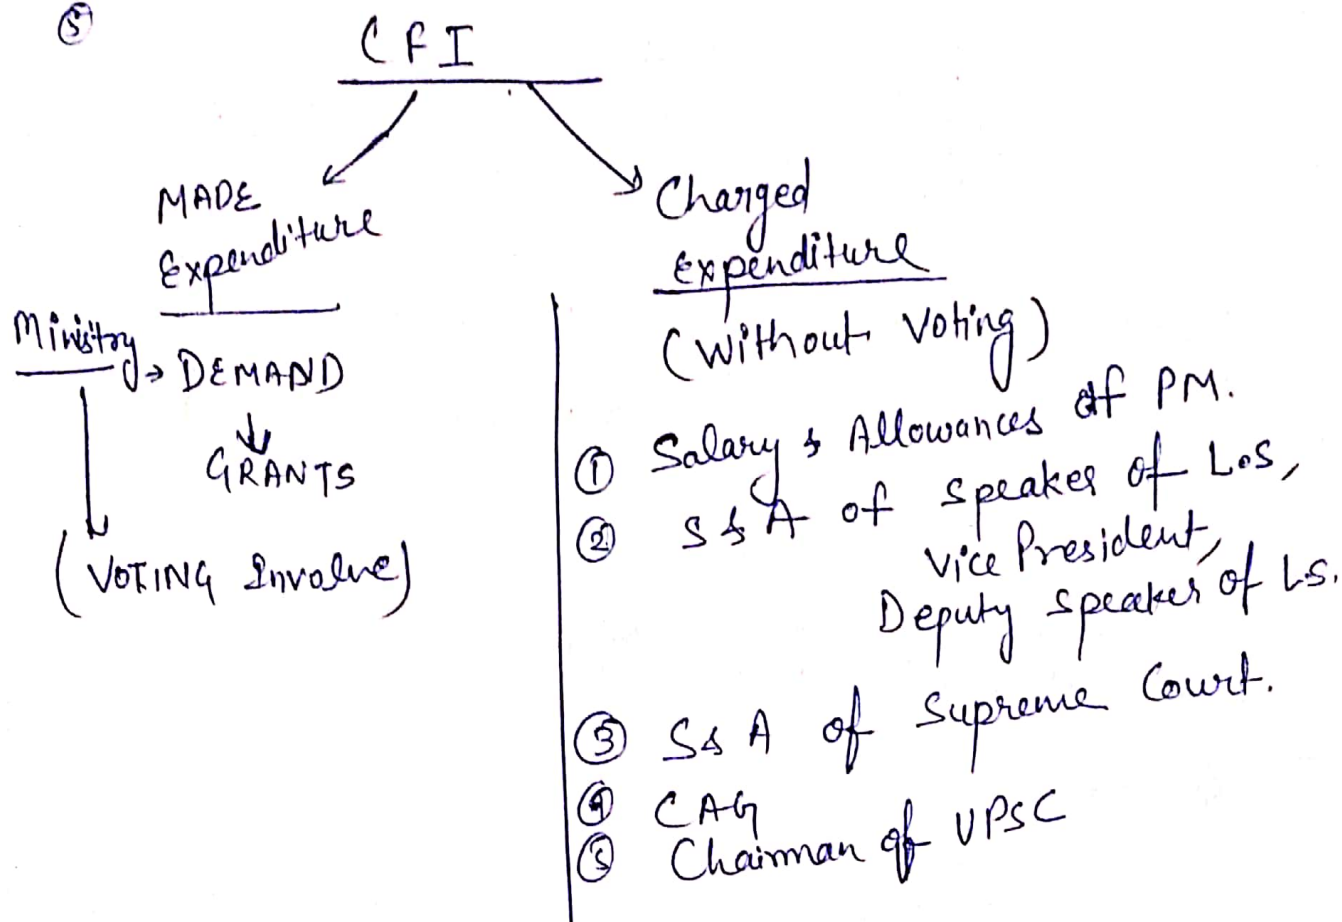 5
CFI
MADE
Expenditure
Ministry → DEMAND
↓
GRANTS
(VOTING Involve)
Charged
Expenditure
(Without Voting)
① Salary & Allowances of PM.
② S & A of Speaker of LoS,
Vice President,
Deputy Speaker of L.S.
③ S & A of Supreme Court.
④ CAG
⑤ Chairman of UPSC